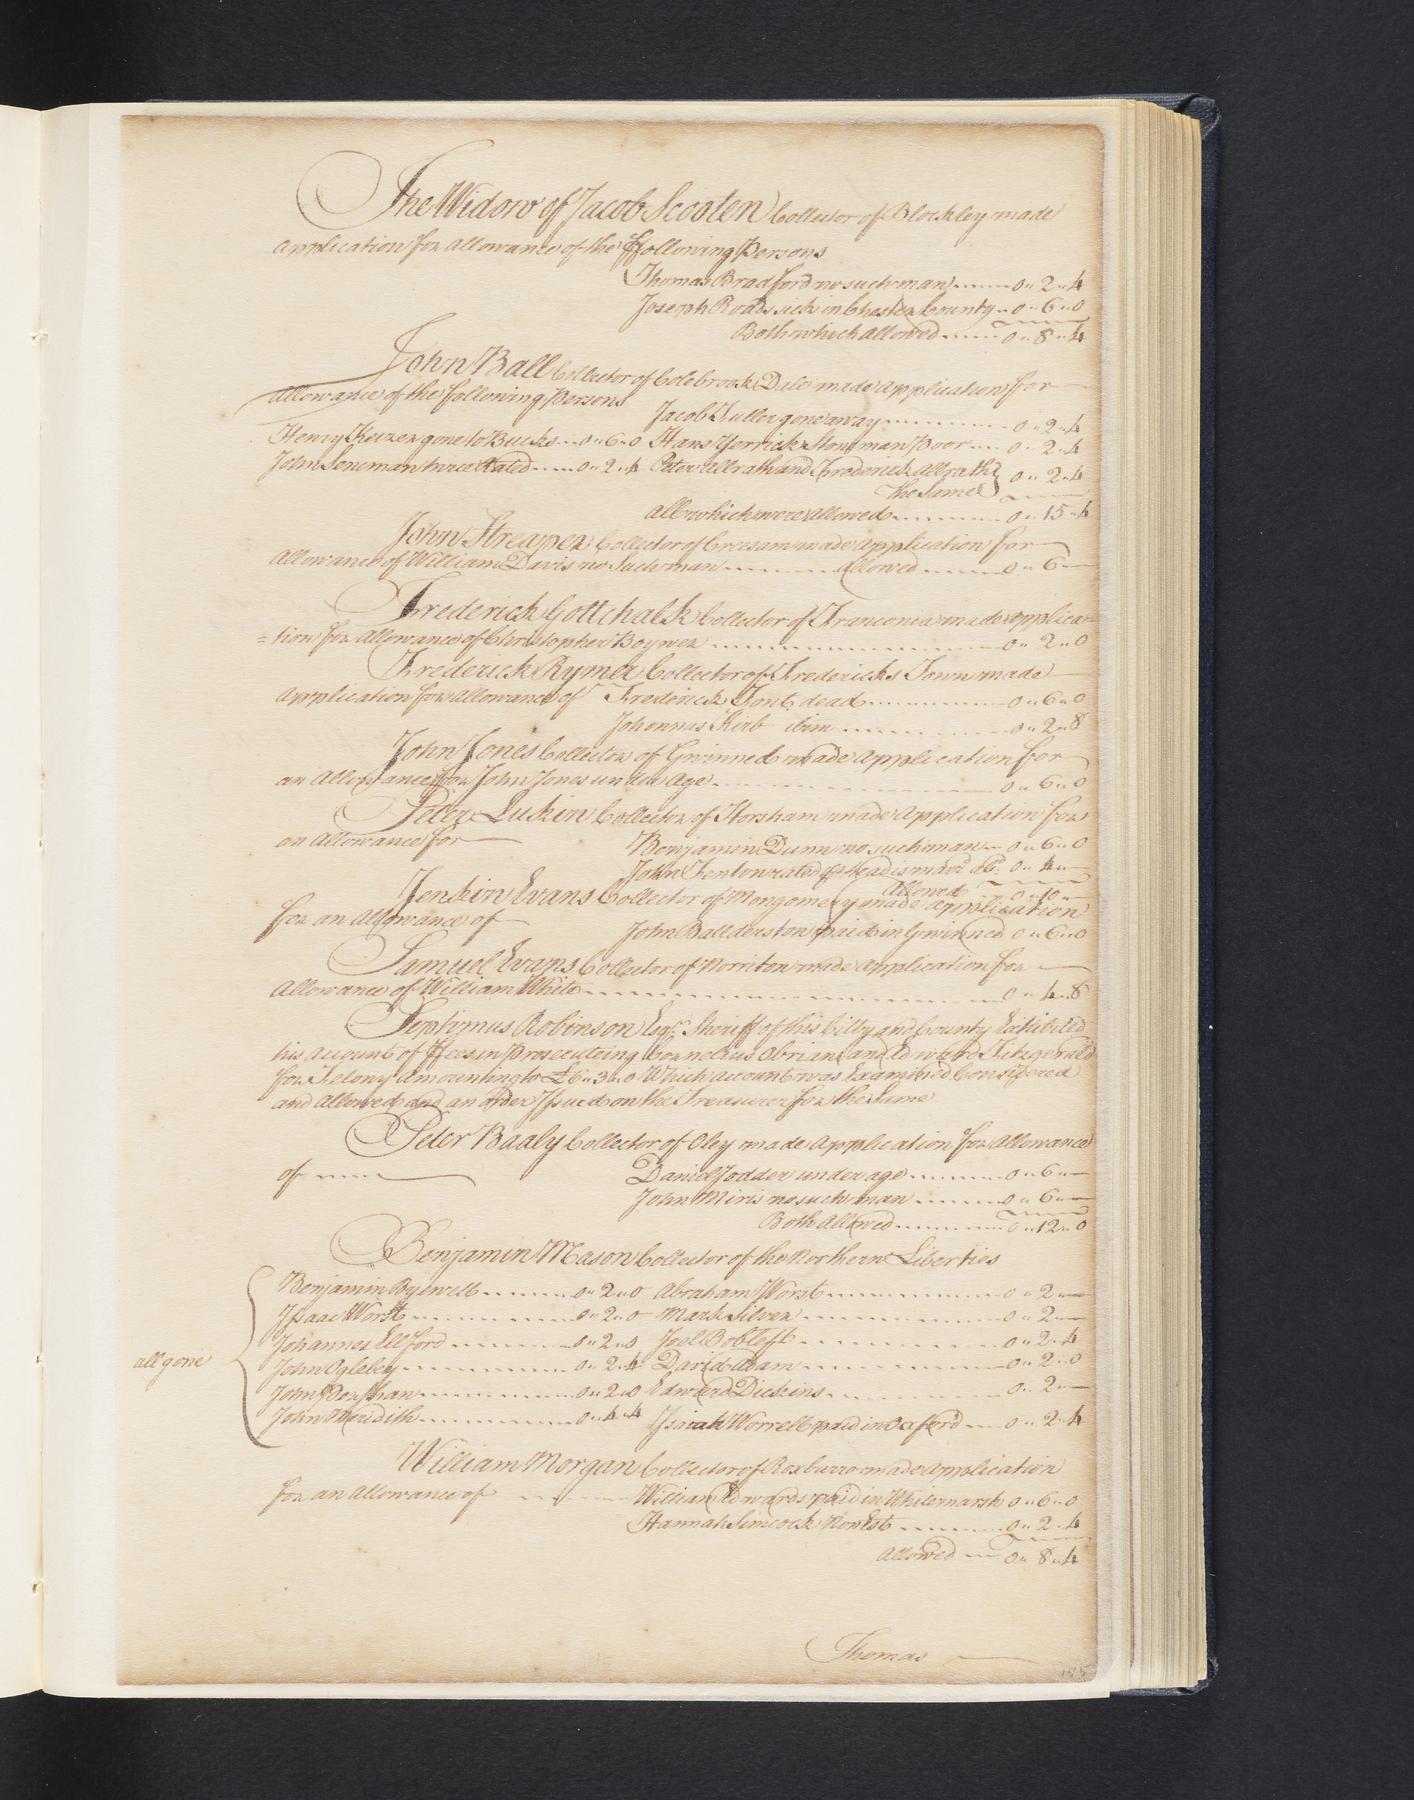 The Widow of Jacob Scooten Collector of Blockley made
application for allowance of the ffollowing Persons
Thomas Bradford no such man 0 " 2 " 4
Joseph Roads sick in Chester County 0 " 6 " 0
Both which allowed 0 " 8 " 4
John Ball Collector of Colebrook Dale made application for
allowance of the following Persons
Jacob Fuller gone away 0 " 2 " 4
Henry Keizer gone to Bucks 0 " 6 " 0 Hans Yerrick Stoneman Poor 0 " 2 " 4
John Soneman twice Rated 0 " 2 " 4 Peter allrath and Frederick allrath 0 " 2 " 4
the Same
all which were allowed 0 " 15 " 4
John Streaper Collector of Cresam made application for
allowance of William Davis no Such man allowed 0 " 6 "
Frederick Gottchalk Collector of Franconia made applica=
=tion for allowance of Christopher Boywer 0 " 2 " 0
Frederick Rymer Collector of Fredericks Town made
application for allowance of Frederick Tont dead 0 " 6 " 0
Johonnas Kirb dim 0 " 2 " 8
John Jones Collector of Gwinned made application for
an Allowance for John Jones under Age 0 " 6 " 0
Peter Luskin Collector of Horsham made Application for
an allowance for Benjamin Dunn no such man 0 " 6 " 0
John Fenton rated head 0 " 4 "
Allowed 0 " 10 "
Jenkin Evans Collector of Mongomery made application
for an allowance of John Ballderston paid in Gwinned 0 " 6 " 0
Samuel Evans Collector of Norriton made application for
allowance of William White 0 " 4 " 8
Septimus Robinson Esqr. Sheriff of this Citty and County Exhibited
his account of ffees in Prosecuteing Cornelius Obrian and Edward Fitzgerald
for Felony amounting to £6 " 3 " 0 Which account was Examined Considered
and allowed and an order Issued on the Treasurer for the Same
Peter Baaly Collector of Oley made application for allowance
of Daniel Jodder under age 0 " 6 "
John Miris no such man 0 " 6 "
Both allowed 0 " 12 " 0
Benjamin Mason Collector of the Northern Liberties
Benjamin Byewell 0 " 2 " 0 Abraham Worst 0 " 2 "
Isaac Worst 0 " 2 " 0 Mark Silver 0 " 2 "
Johannes Ellford 0 " 2 " 0 Joel Bobleft 0 " 2 " 4
all gone John Oglebey 0 " 2 " 4 David adam 0 " 2 " 0
John 0 " 2 " 0 Edward Dickins 0 " 2 "
John Meridith 0 " 4 " 4 Isaiah Worrell paid in Oxford 0 " 2 " 4
William Morgan Collector of Roxburro made application
for an allowance of William Edwards paid in Whitemarsh 0 " 6 " 0
Hannah Simcock Non Est 0 " 2 " 4
allowed 0 " 8 " 4
Thomas